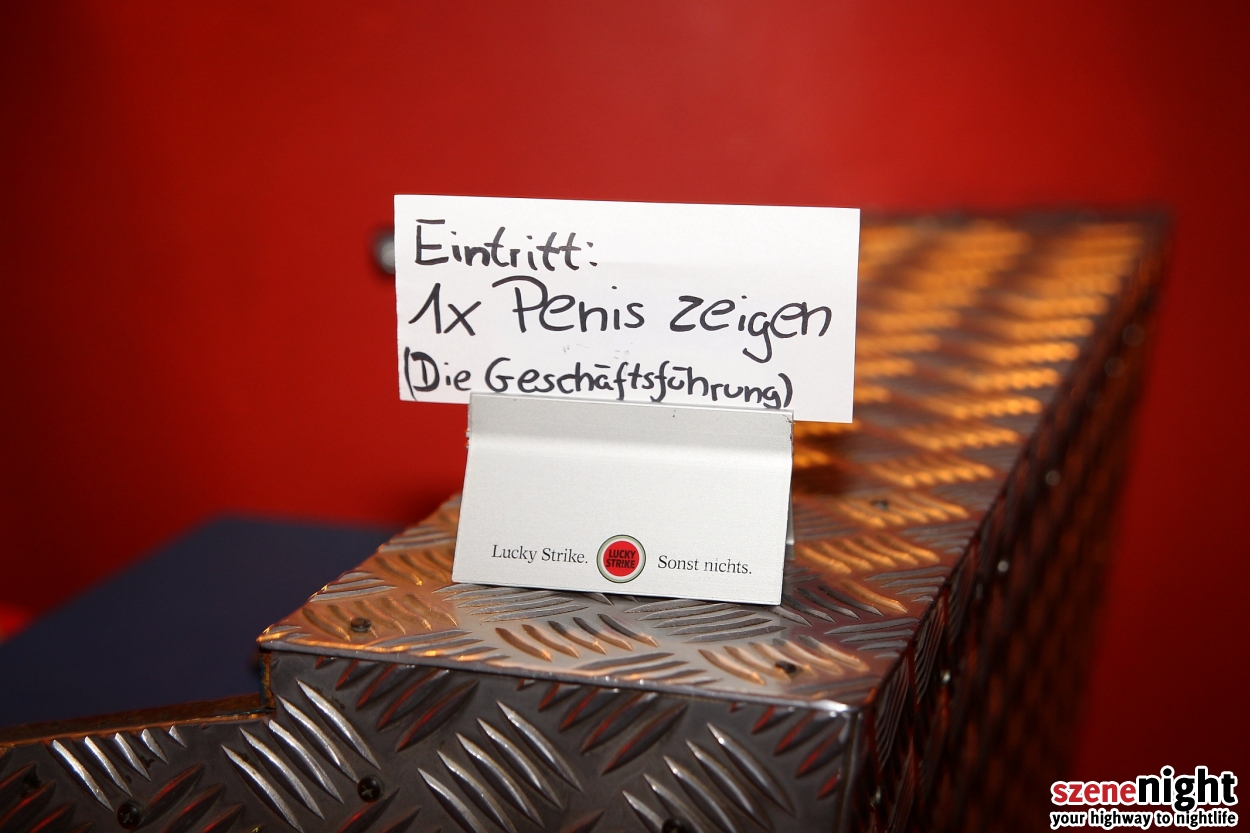 Eintritt:
1x Penis zeigen
(Die Geschäftsführung)
Lucky Strike. LUCKY STRIKE Sonst nichts.
szenenight
your highway to nightlife